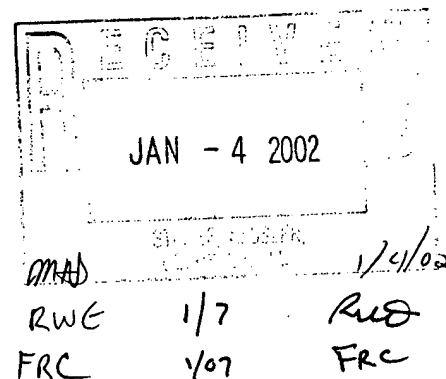 RECEIVED
JAN - 4 2002
DMAD 1/4/02
RWE 1/7
FRC 1/07 FRC